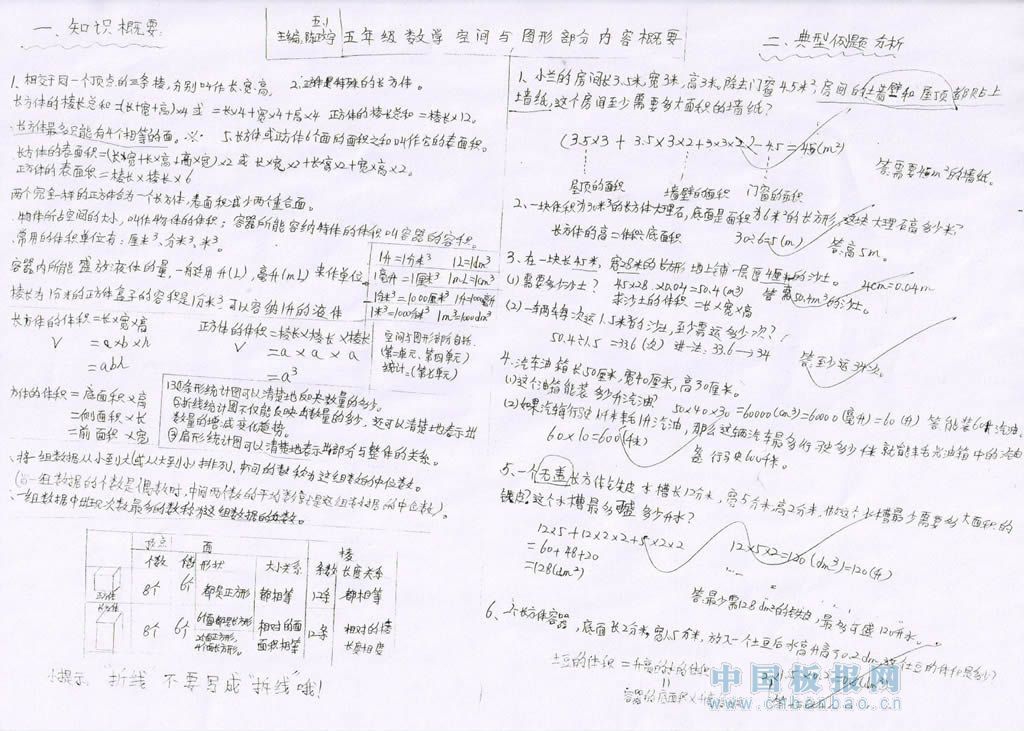 一、知识概要:
五.1
主编:
五年级 数学 空间与图形部分内容概要
二、典型例题分析
1、相交于同一个顶点的三条棱,分别叫作长、宽、高。 2.正方体是特殊的长方体。
长方体的棱长总和=(长+宽+高)×4 或 =长×4+宽×4+高×4 正方体的棱长总和=棱长×12。
长方体最多只能有4个相等的面。※ 5.长方体或正方体6个面的面积之和叫作它的表面积。
长方体的表面积=(长×宽+长×高+高×宽)×2 或 长×宽×2+长×高×2+宽×高×2。
正方体的表面积=棱长×棱长×6
两个完全一样的正方体合为一个长方体,表面积减少两个重合面。
物体所占空间的大小,叫作物体的体积;容器所能容纳物体的体积叫容器的容积。
常用的体积单位有:厘米³、分米³、米³。
容器内所能盛放液体的量,一般适用升(L)、毫升(mL)来作单位。
棱长为1分米的正方体盒子的容积是1分米³,可以容纳1升的液体
1升=1分米³ 1L=1dm³
1毫升=1厘米³ 1mL=1cm³
1分米³=1000厘米³ 1升=1000毫升
1米³=1000分米³ 1m³=1000dm³
长方体的体积=长×宽×高
V =a×b×h
=abh
正方体的体积=棱长×棱长×棱长
V =a×a×a
=a³
空间与图形部分包括:
(第二单元、第四单元)
统计=(第七单元)
方体的体积=底面积×高
=侧面积×长
=前面积×宽
13①条形统计图可以清楚地反映数量的多少。
②折线统计图不仅能反映出数量的多少,还可以清楚地表示出
数量的增减变化趋势。
③扇形统计图可以清楚地表示出部分与整体的关系。
、将一组数据从小到大(或从大到小)排列,中间的数称为这组数的中位数。
(当一组数据的个数是偶数时,中间两个数的平均数是这组数据的中位数)。
、一组数据中出现次数最多的数称为这组数据的众数。
顶点 面 棱
个数 个数 形状 大小关系 条数 长度关系
正方体 8个 6个 都是正方形 都相等 12条 都相等
长方体 8个 6个 6面都是长方形 相对的面面积相等 12条 相对的棱长度相等
小提示 “折线”不要写成“拆线”哦!
1、小兰的房间长3.5米,宽3米,高3米,除去门窗4.5米²,房间的墙壁和屋顶都贴上
墙纸,这个房间至少需要多大面积的墙纸?
(3.5×3 + 3.5×3×2+3×3×2)-4.5=45(m²)
屋顶的面积 墙壁的面积 门窗的面积
答:需要45m²的墙纸。
2、一块体积为30米³的长方体大理石,底面是面积为6米²的长方形,这块大理石高多少米?
长方体的高=体积÷底面积 30÷6=5(m)
答:高5m。
3、在一块长45米,宽28米的长方形地上铺一层厚4厘米的沙土。
(1)需要多少沙土? 45×28×0.04=50.4(m³) 答:需50.4m³的沙土。 4cm=0.04m
求沙土的体积=长×宽×高
(2)一辆车每次运1.5米³的沙土,至少需运多少次?
50.4÷1.5=33.6(次) 进一法:33.6→34
答:至少运34次。
4、汽车油箱长50厘米,宽40厘米,高30厘米。
(1)这个油箱能装多少升汽油? 50×40×30=60000(cm³)=60000(毫升)=60(升) 答:能装60升汽油。
(2)如果汽车行驶10千米耗1升汽油,那么这辆汽车最多行驶多少千米就能耗光油箱中的汽油
60×10=600(千米)
答:行驶600千米。
5、一个无盖长方体铁皮水槽长12分米,宽5分米,高2分米,做这个水槽最少需要多大面积的
铁皮?这个水槽最多可盛多少升水?
12×5+12×2×2+5×2×2
=60+48+20
=128(dm²)
12×5×2=120(dm³)=120(升)
答:最少需128dm²的铁皮,最多可盛120升水。
6、一个长方体容器,底面长2分米,宽1.5分米,放入一个土豆后水升高了0.2dm,这个土豆的体积是多少?
土豆的体积=升高的水的体积
容器的底面积×
中国板报网
www.cnbanbao.cn